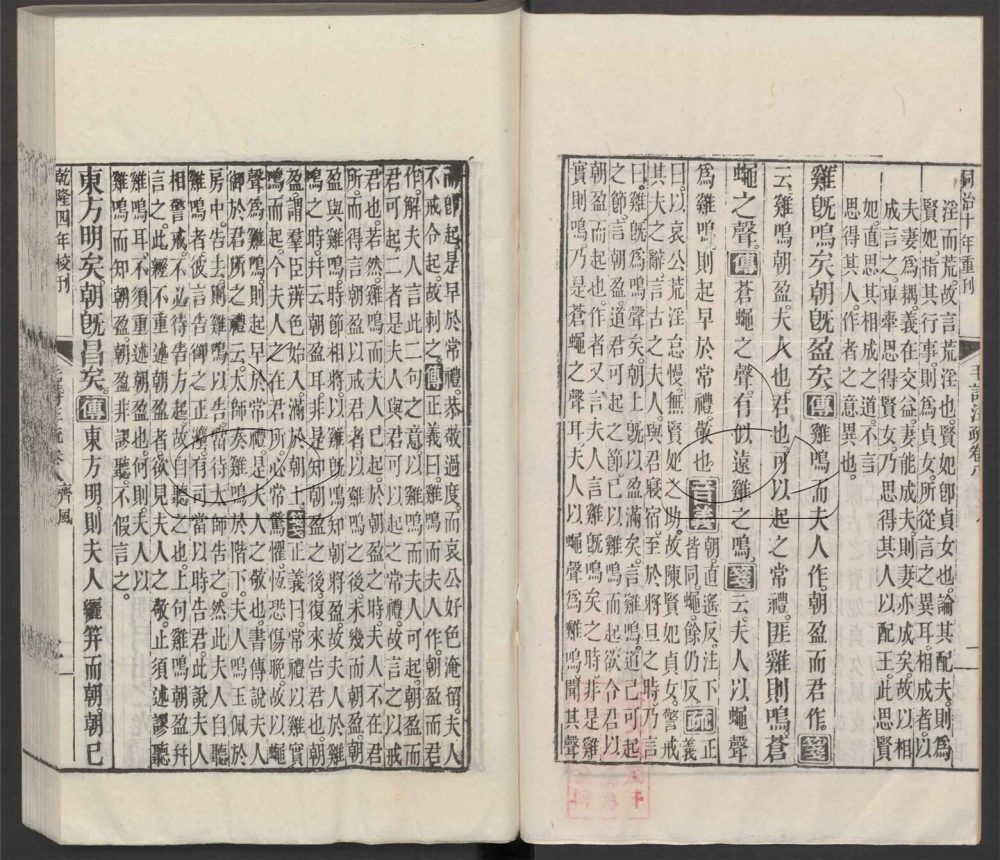 同治十年重刊
毛詩注疏卷八
淫而荒。故言荒淫也。賢妃卽貞女也。論其配夫。則爲
賢妃。指其行事。則爲貞女。所從言之異耳。相成者。以
夫妻爲耦。義在交益。妻能成夫。則妻亦成矣。故以相
成言之。車舝思得賢女。乃思得其人以配王。此思賢
妃。直思其相成之道。不言
思得其人。作者之意異也。
雞旣鳴矣。朝旣盈矣。傳雞鳴而夫人作。朝盈而君作。箋
云。雞鳴朝盈。夫人也。君也。可以起之常禮。匪雞則鳴。蒼
蠅之聲。傳蒼蠅之聲。有似遠雞之鳴。箋云。夫人以蠅聲
爲雞鳴。則起早於常禮。敬也。音義朝直遙反。注下皆同。蠅。餘仍反。疏正義
曰。以哀公荒淫怠慢。無賢妃之助。故陳賢妃貞女。警戒
其夫之辭。言古之夫人。與君寢宿。至於將旦之時。乃言
曰。雞旣爲鳴聲矣。朝上旣以盈滿矣。言雞鳴。道己可起
之節。言朝盈。道君可起之節。己以雞鳴而起。欲令君以
朝盈而起也。作者又言夫人言雞旣鳴矣之時。非是雞
實則鳴。乃是蒼蠅之聲耳。夫人以蠅聲爲雞鳴。聞其聲
而卽起。是早於常禮。恭敬過度。而哀公好色淹留。夫人
不戒令起。故刺之。傳正義曰。雞鳴而夫人作。朝盈而君
作。解夫人言此二句之意。以雞鳴而夫人可起。朝盈而
君可起。二者是夫人與君可以起之常禮。故言之以戒
君也。若然。雞鳴而夫人已起。於朝盈之時。夫人不在君
所。而得言朝盈以戒君者。以雞鳴之後。未幾而朝盈。朝
盈與雞鳴。時節相將。以雞旣鳴。知朝將盈。故夫人於雞
鳴之時。幷云朝盈耳。非是知朝盈之後。復來告君也。朝
盈謂羣臣辨色始入。滿於朝上。箋正義曰。常禮以雞實
鳴而起。今夫人之在君所。心常驚懼。恆恐傷晚。故以蠅
聲爲雞鳴。則起早於常禮。是夫人之敬也。書傳說夫人
御於君所之禮云。太師奏雞鳴於階下。夫人鳴玉佩於
房中。告去。則雞鳴以告。當待太師告之。然此夫人自聽
雞鳴者。彼言告御之正灋。有司當以時告君。此說夫人
相警戒。不必待告方起。故自聽之也。上句雞鳴朝盈幷
言之。此經不重述朝盈者。欲見夫人之敬。止須述謬聽
雞鳴耳。不須重述朝盈也。何則。夫人以
雞鳴而知朝盈。朝盈非謬聽。不假言之。
東方明矣。朝旣昌矣。傳東方明。則夫人纚笄而朝。朝已
乾隆四年校刊
齊風